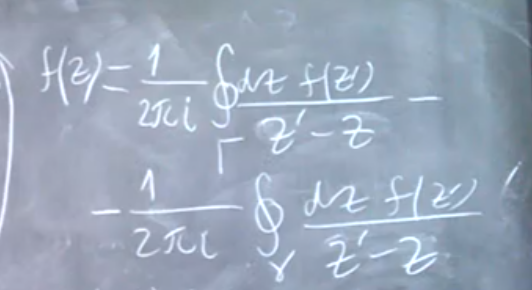 f(z) = \frac{1}{2\pi i} \oint_{\Gamma} \frac{dz f(z')}{z' - z} -
- \frac{1}{2\pi i} \oint_{\gamma} \frac{dz f(z')}{z' - z}